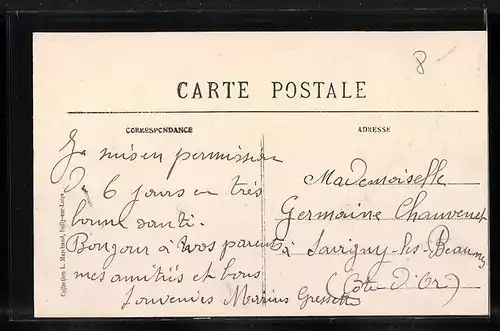 8
CARTE POSTALE
CORRESPONDANCE
ADRESSE
Je suis en permission
De 6 jours en très
bonne santi.
Bongour à vos parents
mes amitiés et bons
souvenirs Marius
Mademoiselle
Germaine Chauvenet
à Savigny-les-Beaunes
(Côte d'Or)
Collection L. Marchand, Sully-sur-Loire